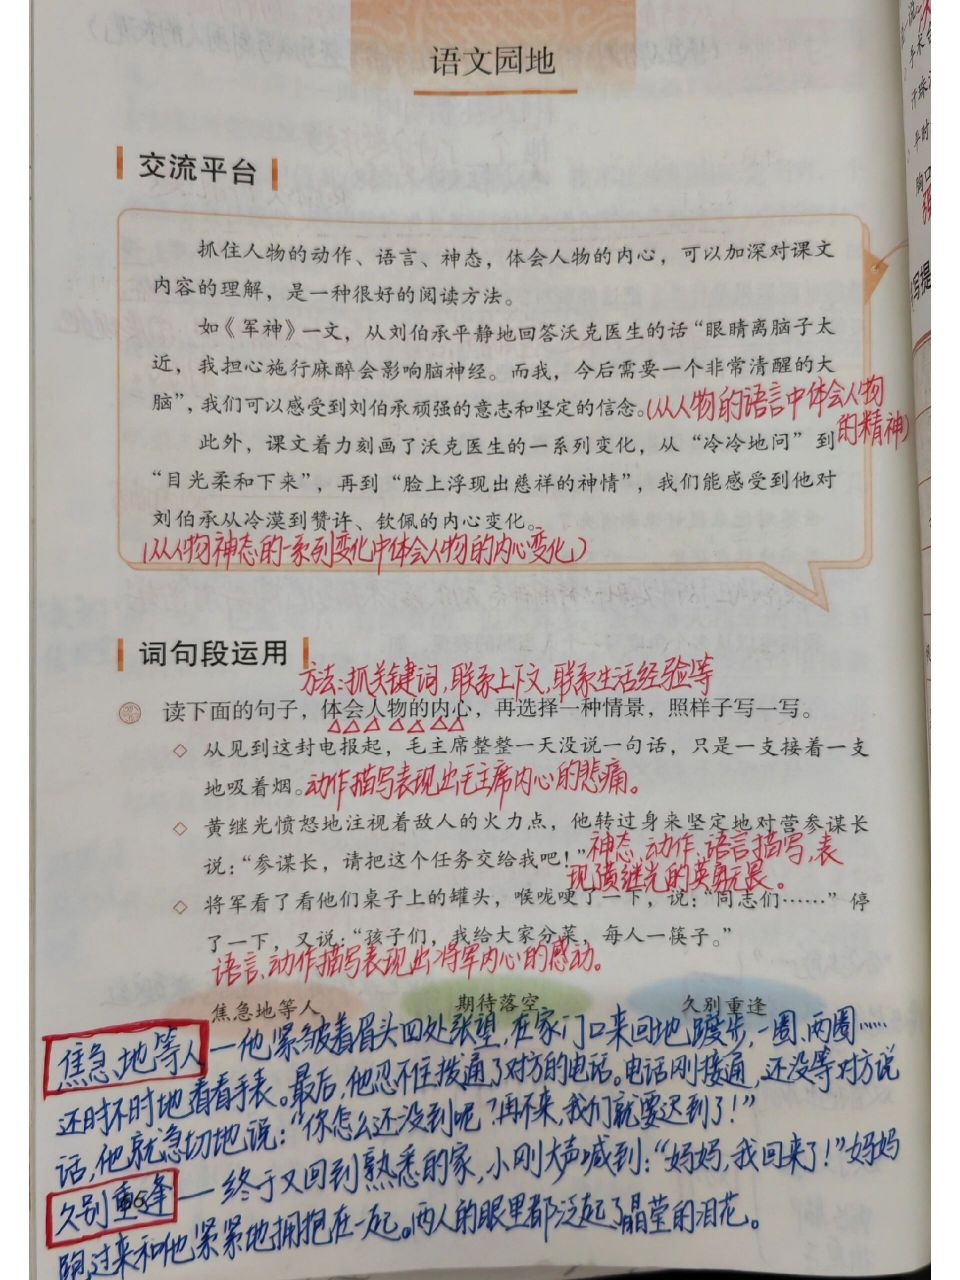 语文园地
交流平台
抓住人物的动作、语言、神态，体会人物的内心，可以加深对课文
内容的理解，是一种很好的阅读方法。
如《军神》一文，从刘伯承平静地回答沃克医生的话“眼睛离脑子太
近，我担心施行麻醉会影响脑神经。而我，今后需要一个非常清醒的大
脑”，我们可以感受到刘伯承顽强的意志和坚定的信念。(从人物的语言中体会人物
的精神)
此外，课文着力刻画了沃克医生的一系列变化，从“冷冷地问”到
“目光柔和下来”，再到“脸上浮现出慈祥的神情”，我们能感受到他对
刘伯承从冷漠到赞许、钦佩的内心变化。
(从人物神态的一系列变化中体会人物的内心变化)
词句段运用
方法：抓关键词，联系上下文，联系生活经验等
读下面的句子，体会人物的内心，再选择一种情景，照样子写一写。
◇ 从见到这封电报起，毛主席整整一天没说一句话，只是一支接着一支
地吸着烟。动作描写表现出毛主席内心的悲痛。
◇ 黄继光愤怒地注视着敌人的火力点，他转过身来坚定地对营参谋长
说：“参谋长，请把这个任务交给我吧！”神态、动作、语言描写，表
现黄继光的英勇无畏。
◇ 将军看了看他们桌子上的罐头，喉咙哽了一下，说：“同志们……”停
了一下，又说：“孩子们，我给大家分菜，每人一筷子。”
语言、动作描写表现出将军内心的感动。
焦急地等人 期待落空 久别重逢
焦急地等人—他紧皱着眉头四处张望，在家门口来回地踱步，一圈，两圈……
还时不时地看看手表。最后，他忍不住拨通了对方的电话。电话刚接通，还没等对方说
话，他就急切地说：“你怎么还没到呢？再不来，我们就要迟到了！”
久别重逢—终于又回到熟悉的家，小刚大声喊到：“妈妈，我回来了！”妈妈
跑过来和他紧紧地拥抱在一起。两人的眼里都泛起了晶莹的泪花。